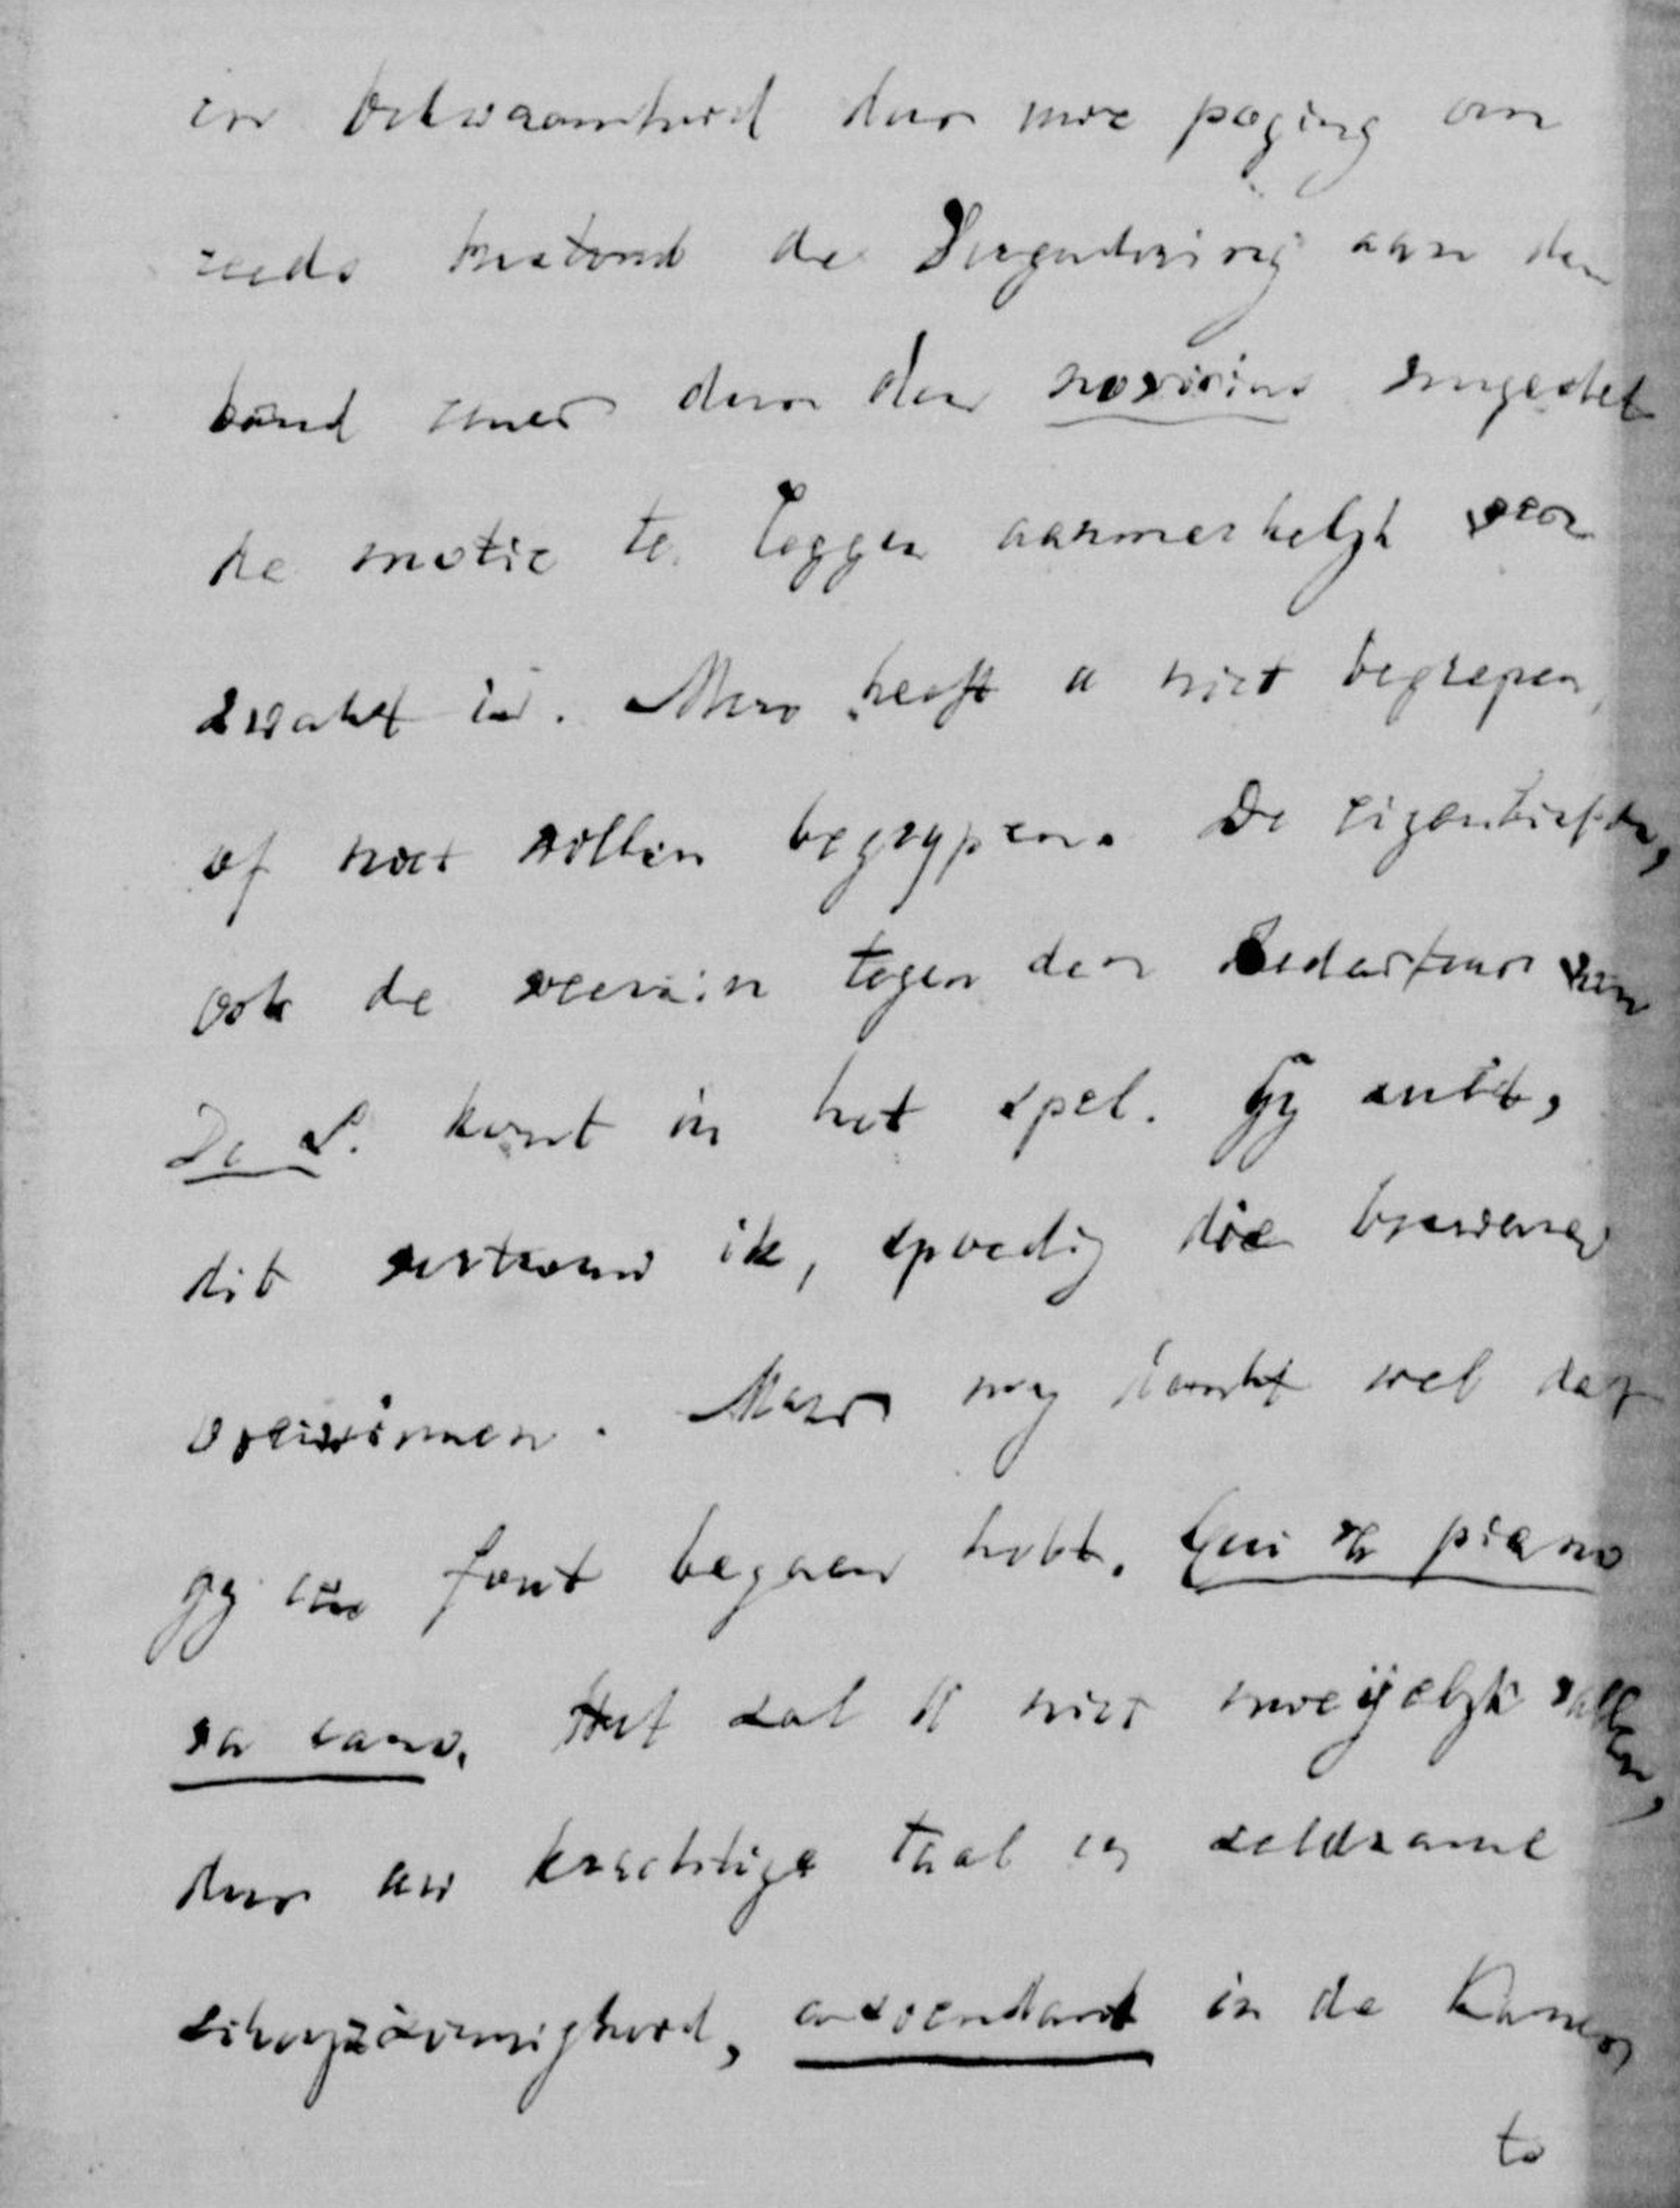 en bekwaamheid door uwe poging om
reeds terstond de Vergadering aan den
band eener door den novicius ingestel
de motie te leggen aanmerkelijk ver
zwakt is. Men heeft u niet begrepen,
of niet willen begrypen. De eigenliefde,
ook de veenin tegen den Redacteur van
De S. komt in het spel. Gy zult,
dit vertrouw ik, spoedig die bezwaren
overwinnen. Maar my dunkt wel dat
gy een fout begaan hebt. Qui va piano
va sano. Het zal U niet moeijelyk vallen,
door uw krachtige taal en zeldzame
scherpzinnigheid, in de Kamer
te